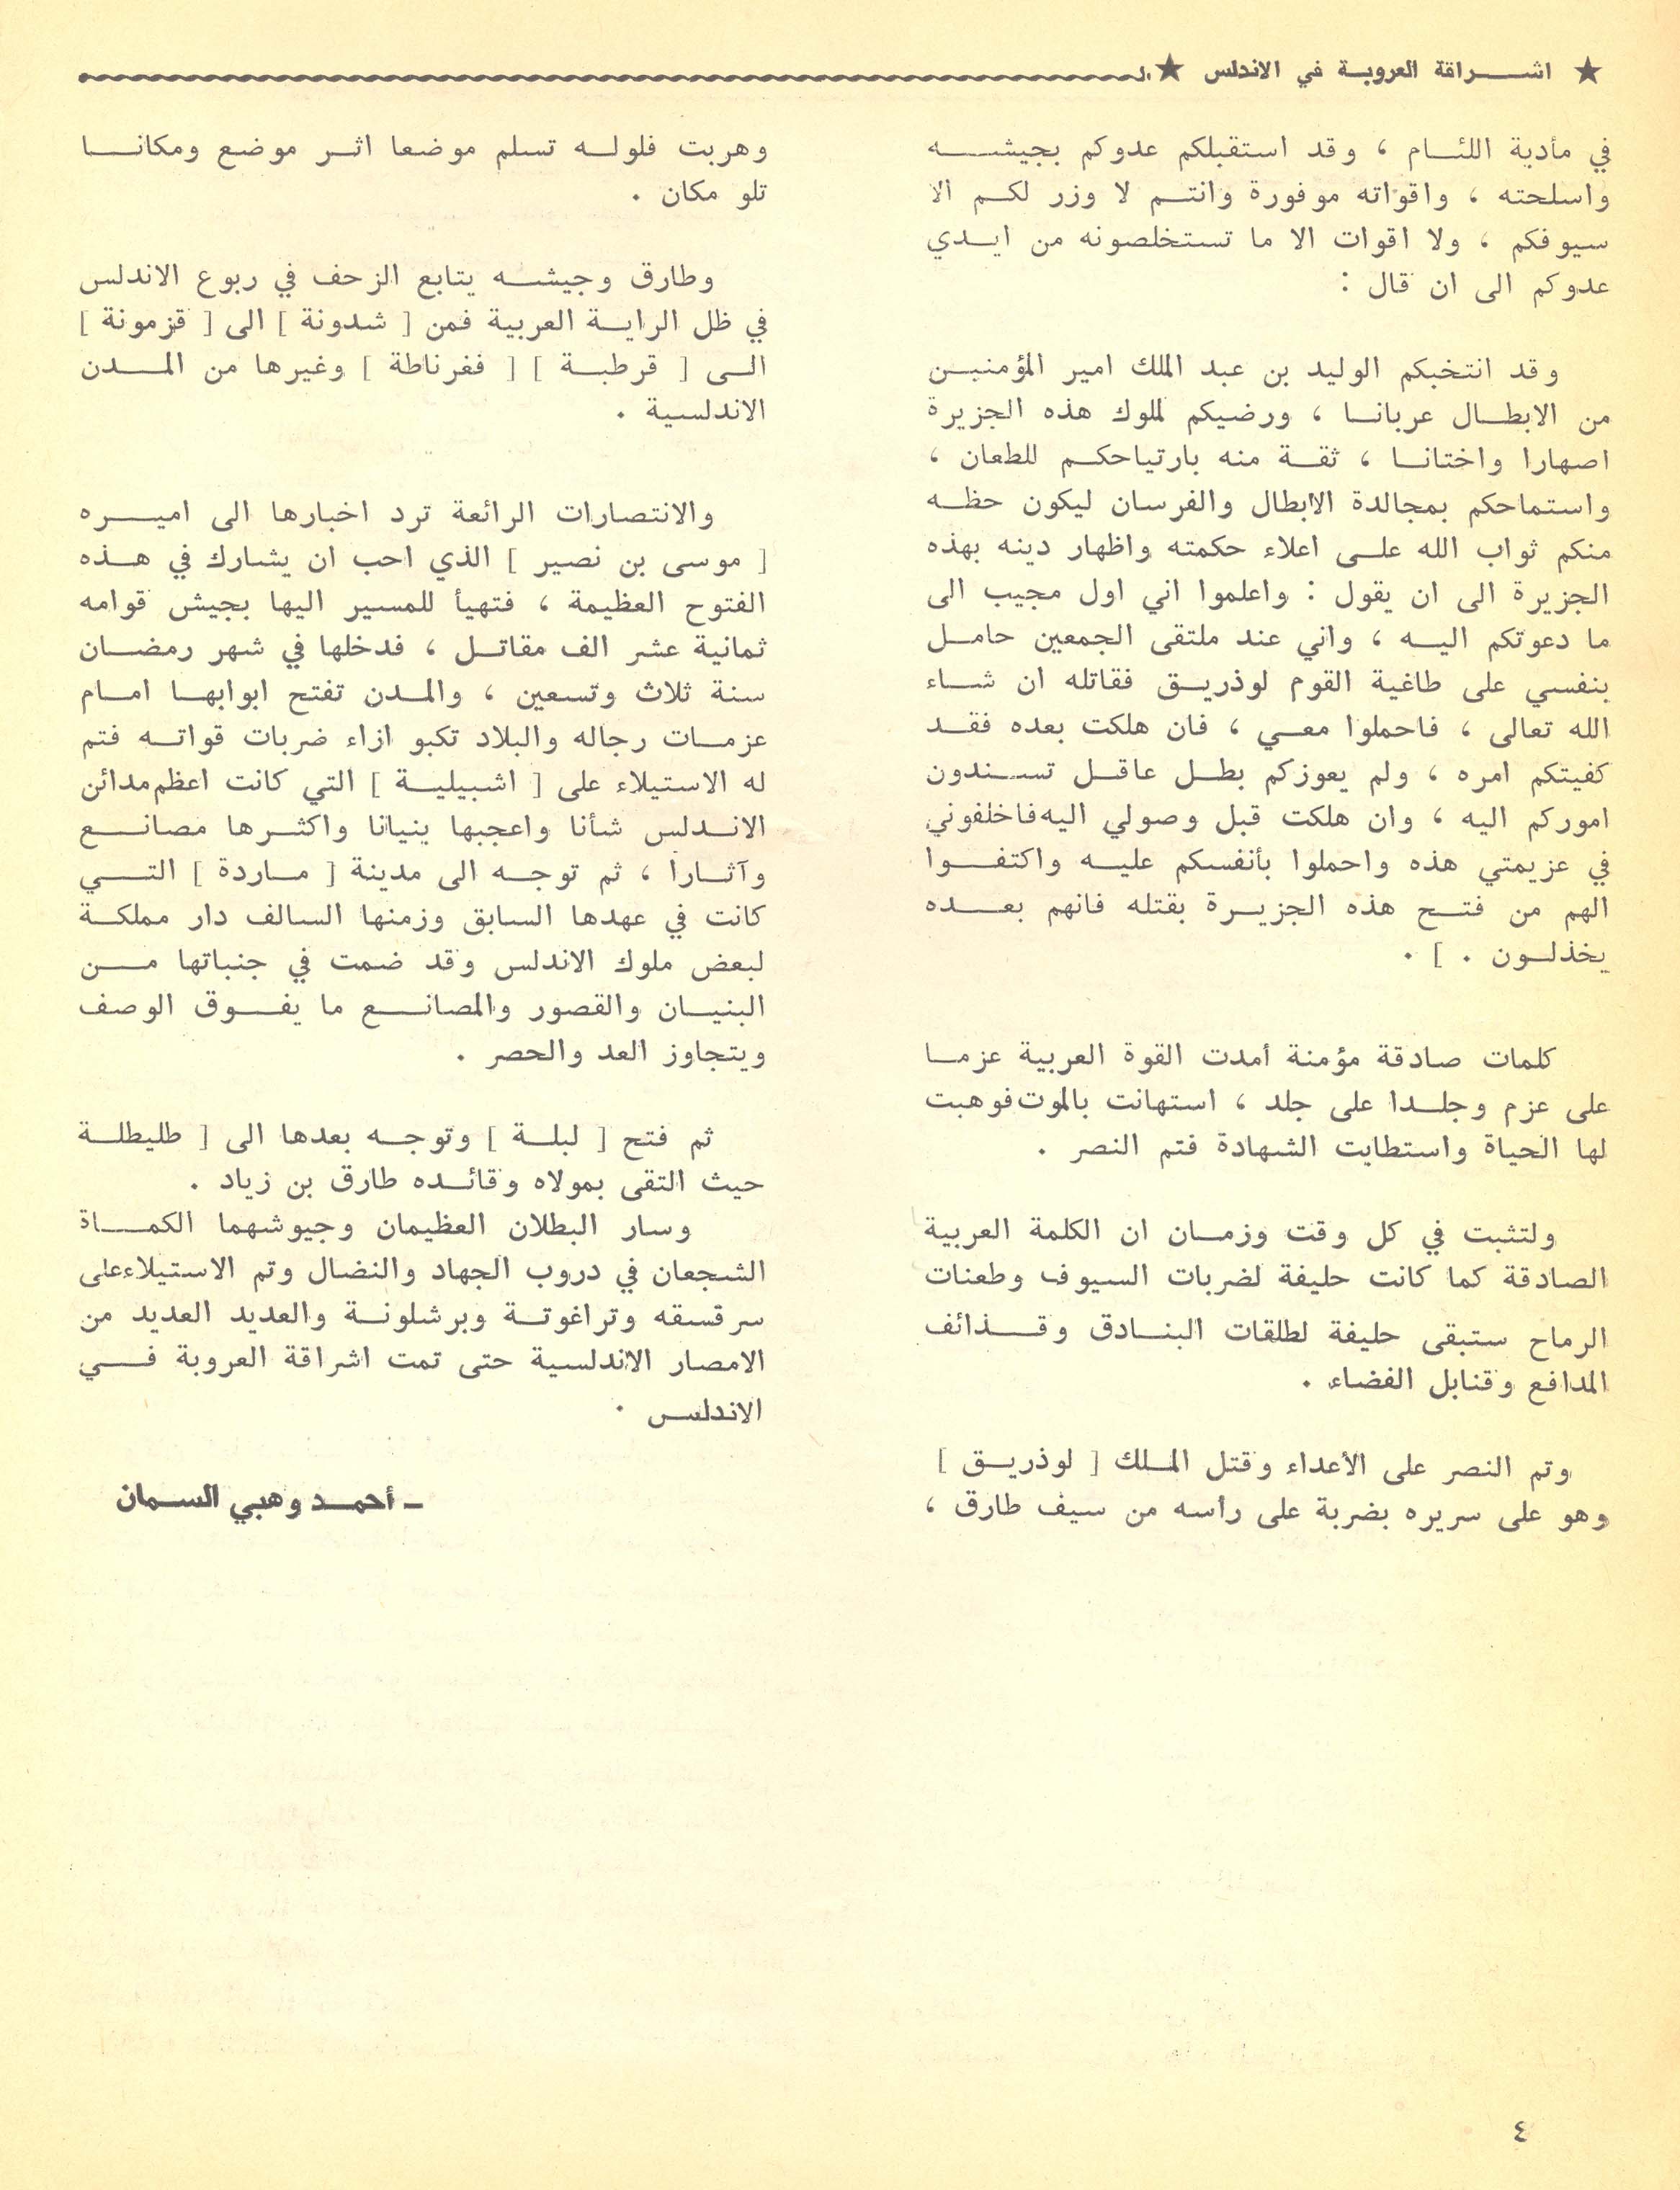 ★ اشراقة العروبة في الاندلس ★
في مأدبة اللئام ، وقد استقبلكم عدوكم بجيشه
واسلحته ، واقواته موفورة وانتم لا وزر لكم الا
سيوفكم ، ولا اقوات الا ما تستخلصونه من ايدي
عدوكم الى ان قال :
وقد انتخبكم الوليد بن عبد الملك امير المؤمنين
من الابطال عربانا ، ورضيكم لملوك هذه الجزيرة
اصهارا واختانا ، ثقة منه بارتياحكم للطعان ،
واستماحكم بمجالدة الابطال والفرسان ليكون حظه
منكم ثواب الله على اعلاء حكمته واظهار دينه بهذه
الجزيرة الى ان يقول : واعلموا اني اول مجيب الى
ما دعوتكم اليه ، واني عند ملتقى الجمعين حامل
بنفسي على طاغية القوم لوذريق فقاتله ان شاء
الله تعالى ، فاحملوا معي ، فان هلكت بعده فقد
كفيتكم امره ، ولم يعوزكم بطل عاقل تسندون
اموركم اليه ، وان هلكت قبل وصولي اليه فاخلفوني
في عزيمتي هذه واحملوا بأنفسكم عليه واكتفوا
الهم من فتح هذه الجزيرة بقتله فانهم بعده
يخذلون . ] .
كلمات صادقة مؤمنة أمدت القوة العربية عزما
على عزم وجلدا على جلد ، استهانت بالموت فوهبت
لها الحياة واستطابت الشهادة فتم النصر .
ولتثبت في كل وقت وزمان ان الكلمة العربية
الصادقة كما كانت حليفة لضربات السيوف وطعنات
الرماح ستبقى حليفة لطلقات البنادق وقذائف
المدافع وقنابل الفضاء .
وتم النصر على الأعداء وقتل الملك [ لوذريق ]
وهو على سريره بضربة على رأسه من سيف طارق ،
وهربت فلوله تسلم موضعا اثر موضع ومكانا
تلو مكان .
وطارق وجيشه يتابع الزحف في ربوع الاندلس
في ظل الراية العربية فمن [ شدونة ] الى [ قزمونة ]
الى [ قرطبة ] [ ففرناطة ] وغيرها من المدن
الاندلسية .
والانتصارات الرائعة ترد اخبارها الى اميره
[ موسى بن نصير ] الذي احب ان يشارك في هذه
الفتوح العظيمة ، فتهيأ للمسير اليها بجيش قوامه
ثمانية عشر الف مقاتل ، فدخلها في شهر رمضان
سنة ثلاث وتسعين ، والمدن تفتح ابوابها امام
عزمات رجاله والبلاد تكبو ازاء ضربات قواته فتم
له الاستيلاء على [ اشبيلية ] التي كانت اعظم مدائن
الاندلس شأنا واعجبها ينيانا واكثرها مصانع
وآثارا ، ثم توجه الى مدينة [ ماردة ] التي
كانت في عهدها السابق وزمنها السالف دار مملكة
لبعض ملوك الاندلس وقد ضمت في جنباتها من
البنيان والقصور والمصانع ما يفوق الوصف
ويتجاوز العد والحصر .
ثم فتح [ لبلة ] وتوجه بعدها الى [ طليطلة
حيث التقى بمولاه وقائده طارق بن زياد .
وسار البطلان العظيمان وجيوشهما الكماة
الشجعان في دروب الجهاد والنضال وتم الاستيلاء على
سرقسقه وتراغوتة وبرشلونة والعديد العديد من
الامصار الاندلسية حتى تمت اشراقة العروبة في
الاندلس .
ـ أحمد وهبي السمان
٤